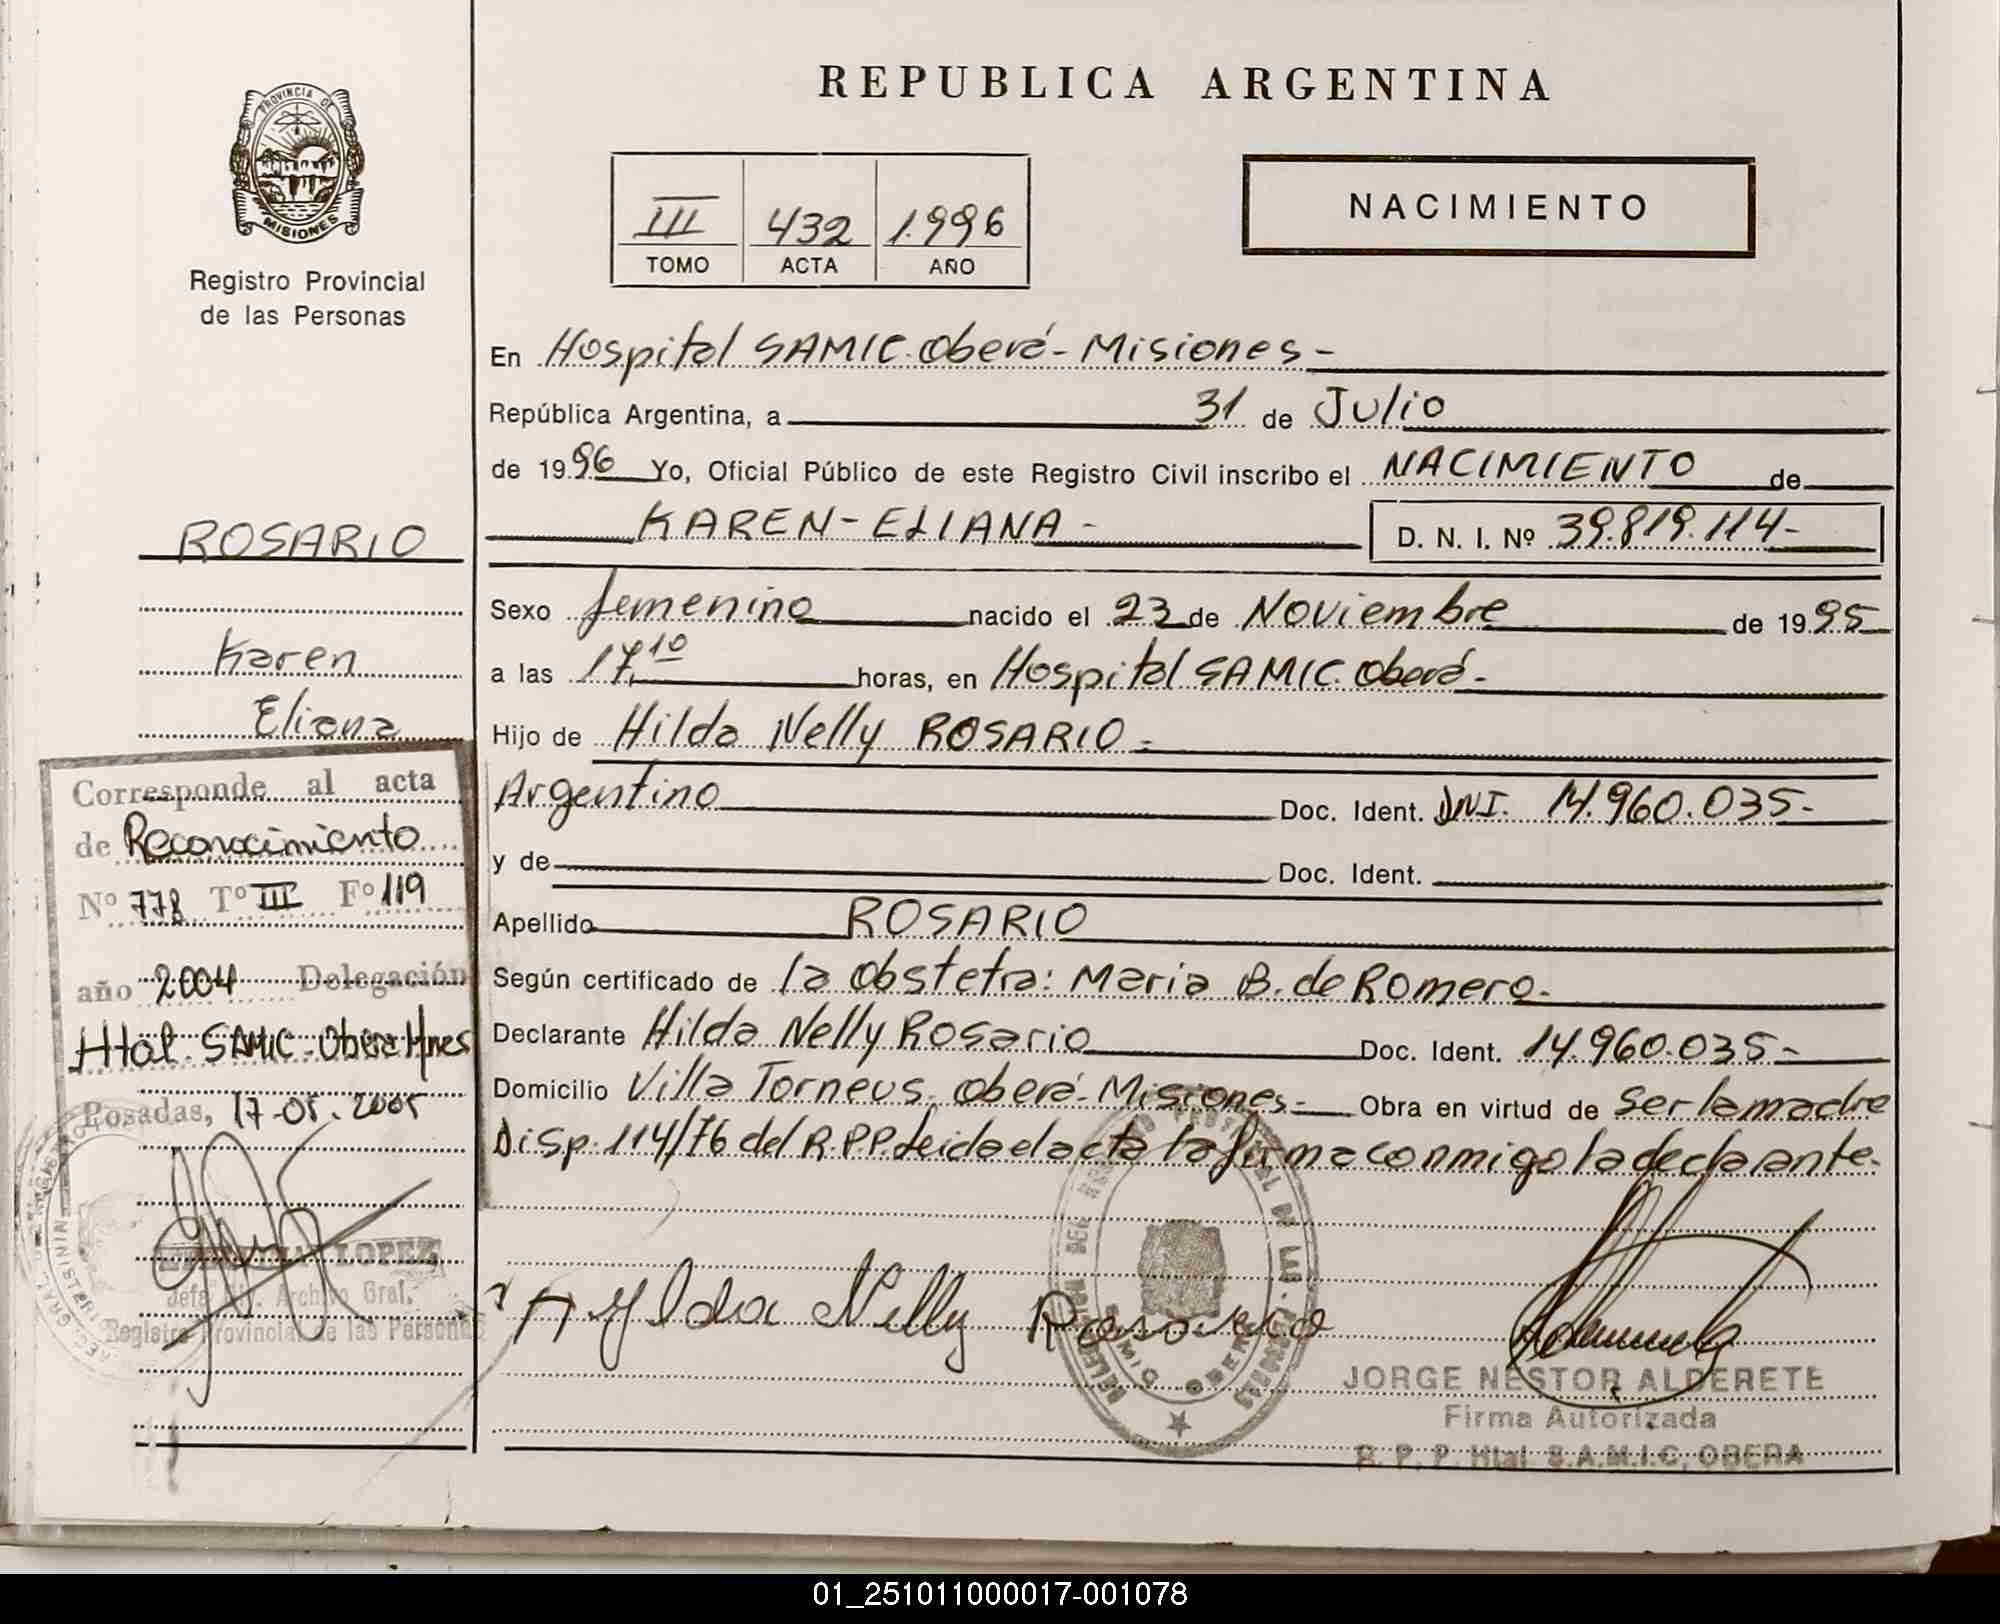 REPUBLICA ARGENTINA
PROVINCIA DE
MISIONES
Registro Provincial
de las Personas
III 432 1.996
TOMO ACTA AÑO
NACIMIENTO
En Hospital SAMIC. Oberá - Misiones -
República Argentina, a 31 de Julio
de 1996 Yo, Oficial Público de este Registro Civil inscribo el NACIMIENTO de
KAREN - ELIANA - D. N. I. Nº 39.819.114-
Sexo femenino nacido el 23 de Noviembre de 1995
a las 17,10 horas, en Hospital SAMIC. Oberá -
Hijo de Hilda Nelly ROSARIO -
Argentino Doc. Ident. DNI. 14.960.035-
y de Doc. Ident.
Apellido ROSARIO
Según certificado de la Obstetra: Maria B. de Romero -
Declarante Hilda Nelly Rosario Doc. Ident. 14.960.035-
Domicilio Villa Torneus. Oberá - Misiones - Obra en virtud de Ser la madre
Disp. 114/76 del R.P.P. Leida el acta la firma conmigo la declarante.
Nelly
JORGE NESTOR ALDERETE
Firma Autorizada
R. P. P. Htal. S.A.M.I.C. OBERA
ROSARIO
Karen
Eliana
Corresponde al acta
de Reconocimiento
Nº 778 Tº III Fº 119
año 2004 Delegación
Htal. SAMIC - Obera Mnes
Posadas, 17-05-2005
LOPEZ
Jefe Archivo Gral.
Registro Provincial de las Personas
01_251011000017-001078